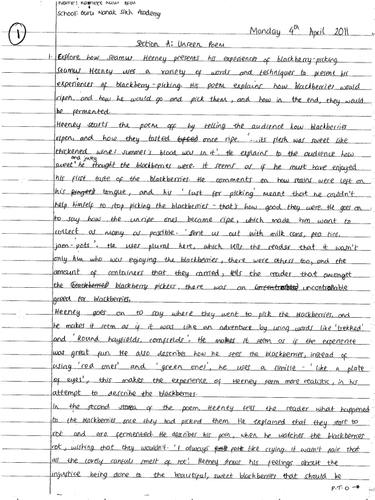 Name: Kaur
School: Guru Nanak Sikh Academy
1
Monday 4th April 2011
Section A: Unseen Poem
1. Explore how Seamus Heaney presents his experience of blackberry-picking
Seamus Heaney uses a variety of words and techniques to present his
experiences of blackberry-picking. His poem explains how blackberries would
ripen, and how he would go and pick them, and how in the end, they would
be fermented.
Heaney starts the poem off by telling the audience how blackberries
ripen and how they tasted once ripe. '...its flesh was sweet like
thickened wine: summer's blood was in it'. He explains to the audience how
sweet and juicy he thought the blackberries were. It seems as if he must have enjoyed
his first taste of the blackberries. He comments on how stains were left on
his tongue, and his 'lust for picking' meant that he couldn't
help himself to stop picking the blackberries - that's how good they were. He goes on
to say how the unripe ones became ripe, which made him want to
collect as many as possible. 'sent us out with milk cans, pea tins,
jam-pots'. He uses plural here, which tells the reader that it wasn't
only him who was enjoying the blackberries, there were others too, and the
amount of containers that they carried, tells the reader that amongst
the blackberry pickers, there was an uncontrollable
greed for blackberries.
Heaney goes on to say where they went to pick the blackberries, and
he makes it seem as if it was like an adventure by using words like 'trekked'
and 'Round hayfields, cornfields'. He makes it seem as if the experience
was great fun. He also describes how he sees the blackberries, instead of
using 'red ones' and 'green ones', he uses a simile - 'like a plate
of eyes', this makes the experience of Heaney more realistic, in his
attempt to describe the blackberries.
In the second of the poem Heaney tells the reader what happened
to the blackberries once they had picked them. He explained that they start to
rot and are fermented. He describes his pain, when he watches the blackberries
rot, wishing that they wouldn't. 'I always felt like crying. It wasn't fair that
all the lovely canfuls smelt of rot'. Heaney shows his feelings about the
injustice being done to the beautiful, sweet blackberries that should be
P.T.O →